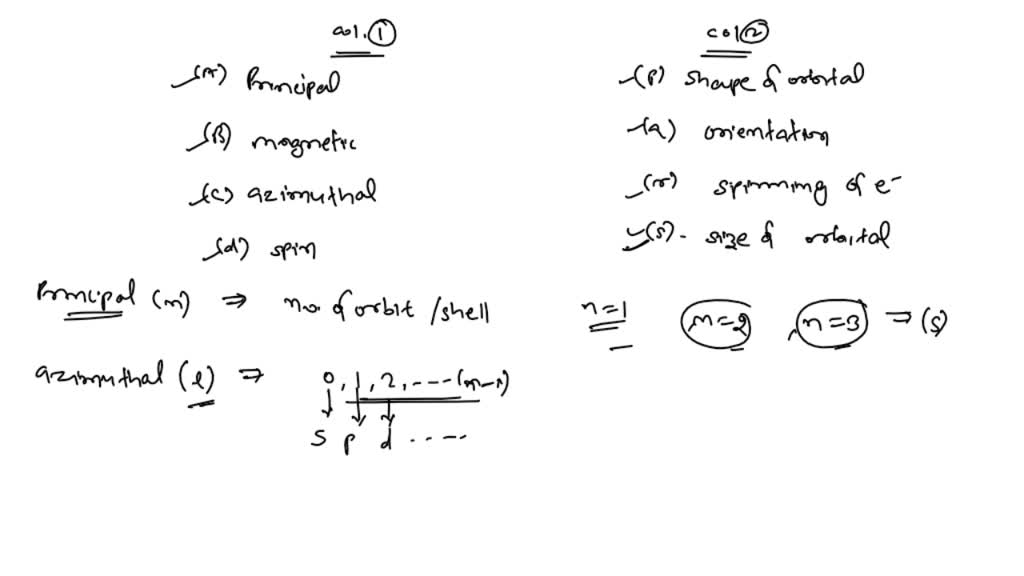 col. ①
(A) Principal
(B) magnetic
(C) azimuthal
(d) spin
col ②
(p) shape of orbital
(q) orientation
(r) spinning of e⁻
(s). size of orbital
Principal (n) ⇒ no. of orbit /shell
n=1 n=2 , n=3 ⇒ (s)
azimuthal (l) ⇒ 0, 1, 2, ---- (n-1)
s p d .....